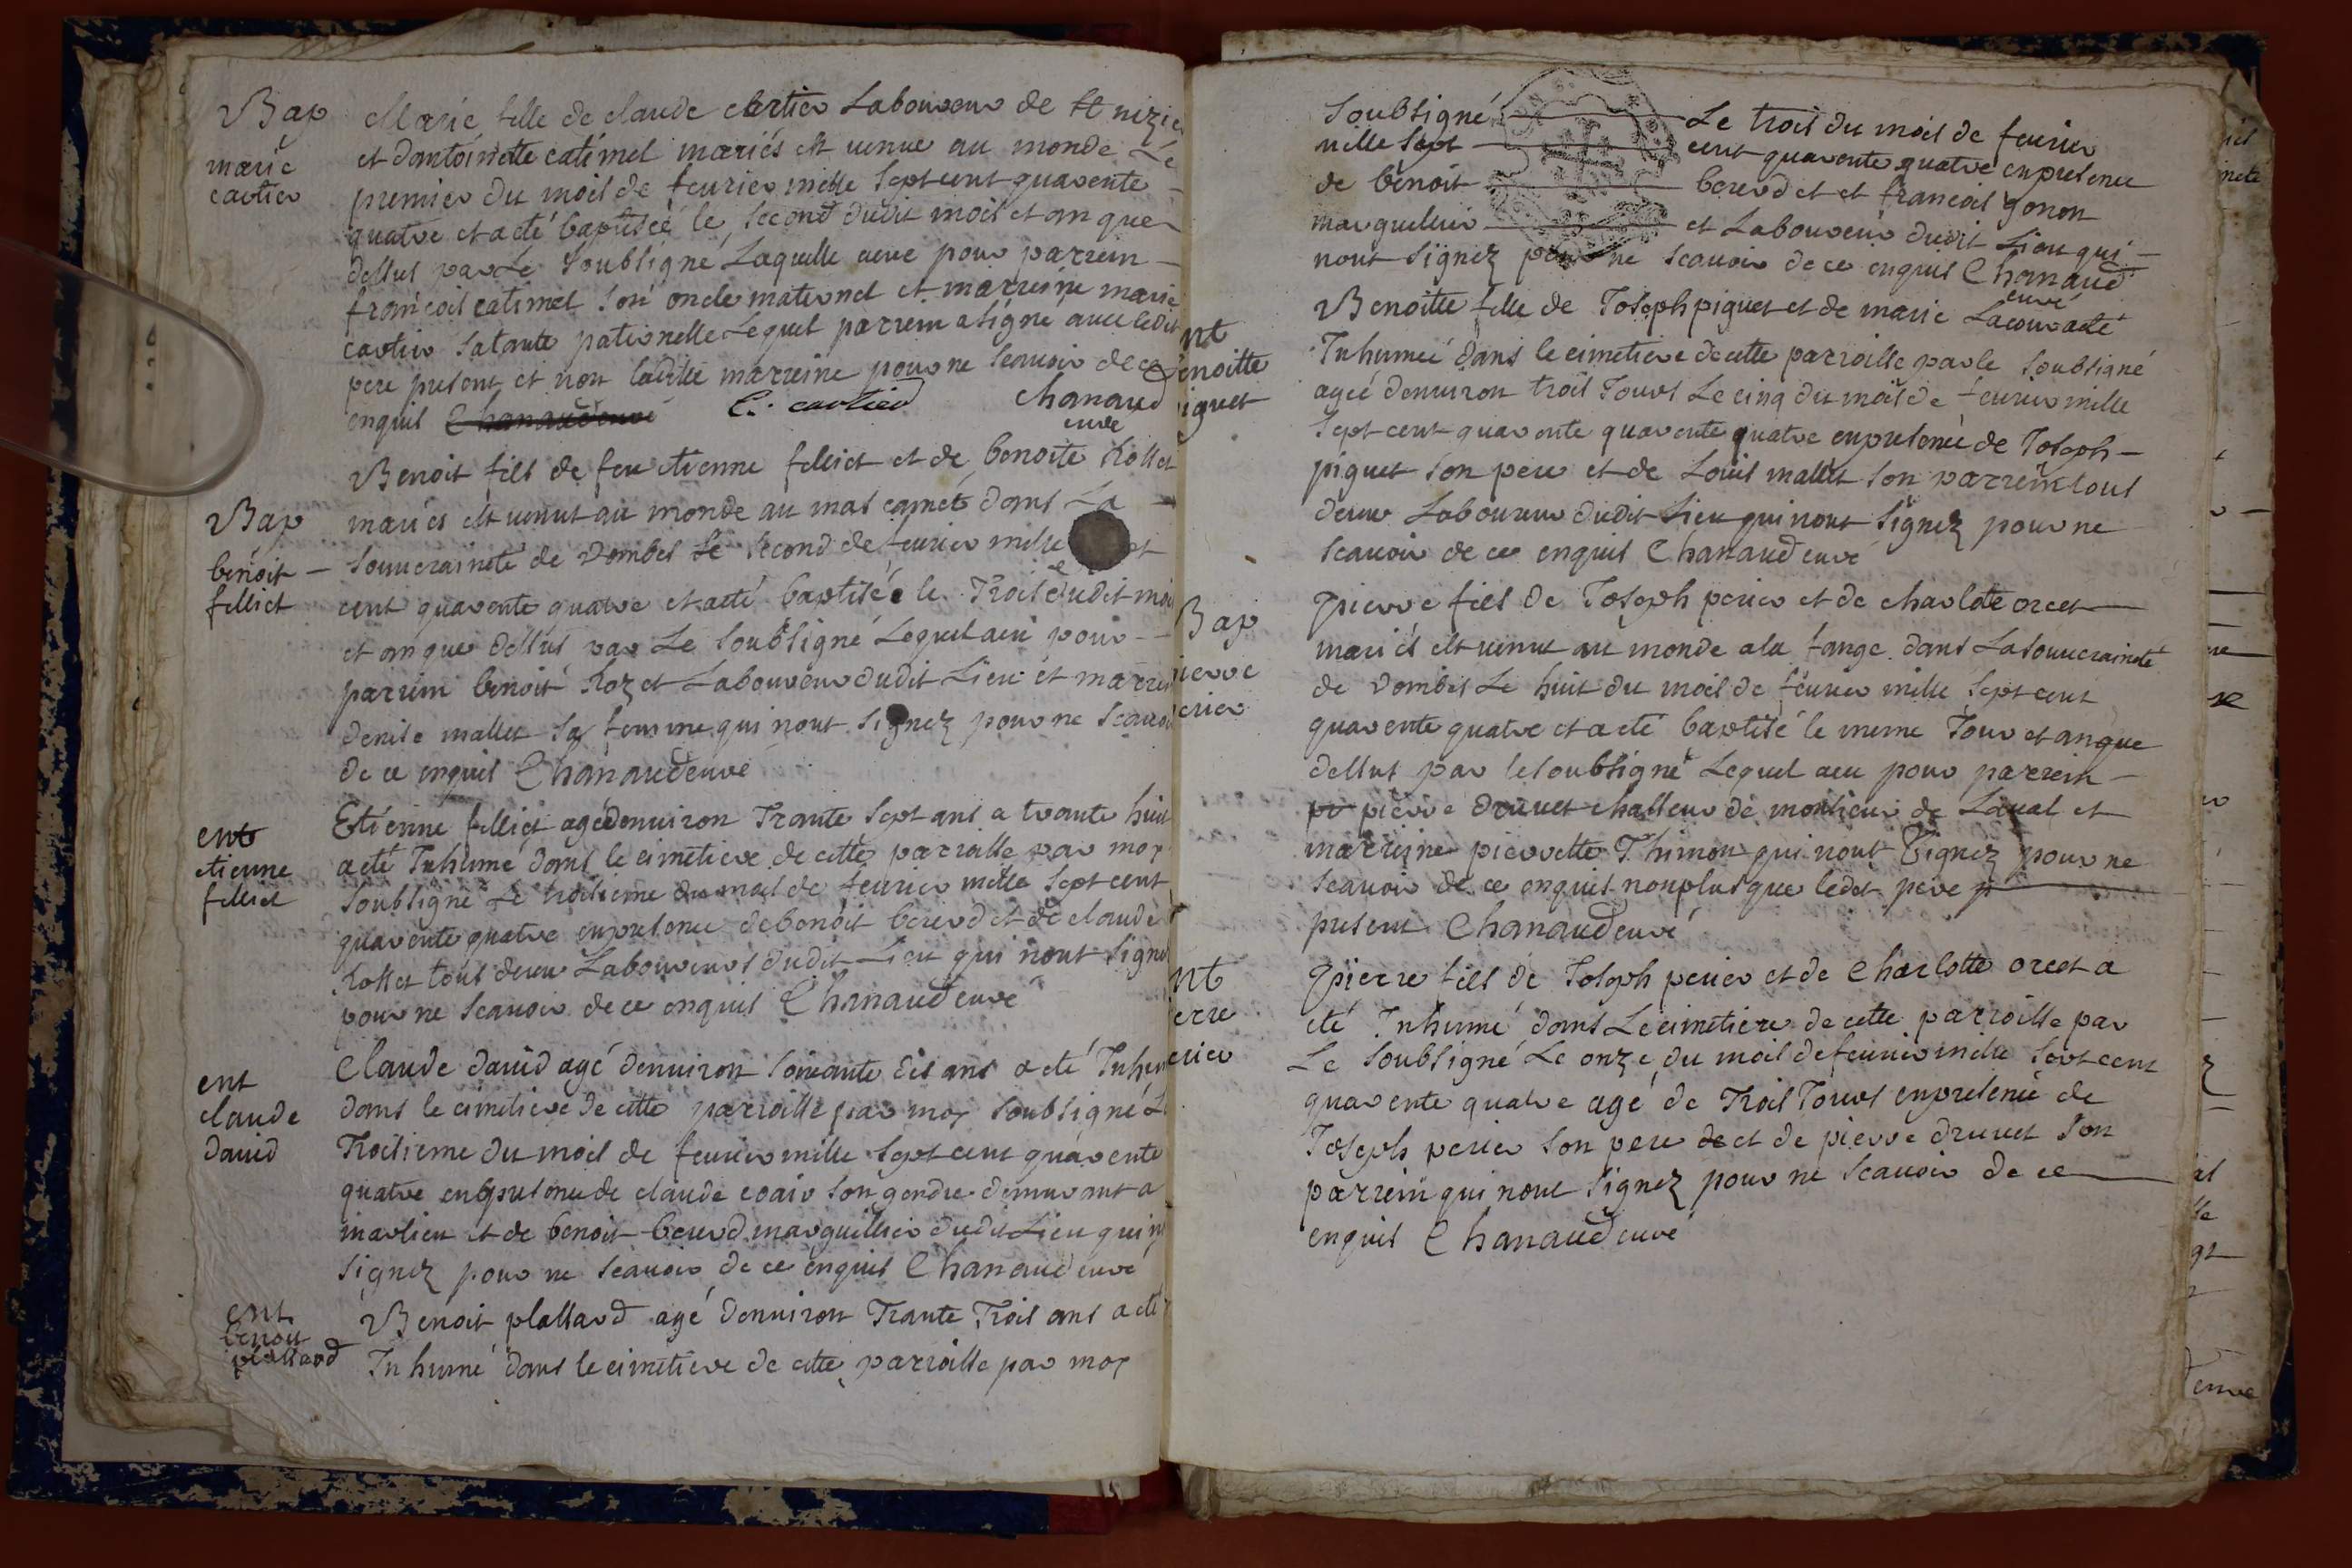 Bap
marie
cartier
Marie fille de claude cartier Laboureur de st nizie
et dantoinette catimel mariés est venue au monde Le
premier du mois de fevrier mille sept cent quarente
quatre et a eté baptisée le second dudit mois et an que
dessus par Le soubsigné Laquelle a eue pour parrein
francois catimel son oncle maternel et marreine marie
cartier sa tante paternelle Lequel parrein a signé avec ledit
pere present et non laditte marreine pour ne scavoir de ce
enquis Chanaud curé C. cartier chanaud
curé
Bap
benoit
felliet
Benoit fils de feu etienne felliet et de benoite Rosset
mariés est venut au monde au mas camet dans La
souveraineté de Dombes Le second de fevrier mille
cent quarente quatre et a eté baptisé le Trois dudit moi
et an que dessus par Le soubsigné Lequel a eu pour
parrein benoit Rozet Laboureur dudit Lieu et marrei
denise mallet sa femme qui n'ont signez pour ne scavoi
de ce enquis Chanaud curé
ent
etienne
felliet
Etienne felliet agé denviron Trante sept ans a trante huit
a eté Inhumé dans le cimetiere de cette parroisse par moy
soubsigné Le troisieme du mois de fevrier mille sept cent
quarente quatre en presence de benoit bererd et de claude
Rosset tous deux Laboureurs dudit Lieu qui n'ont signé
pour ne scavoir de ce enquis Chanaud curé
ent
claude
david
Claude david agé denviron soixante dis ans a eté Inhum
dans le cimetiere de cette parroisse par moy soubsigné L
Troisieme du mois de fevrier mille sept cent quarente
quatre en presence de claude coair son gendre demeurant a
marlieu et de benoit bererd marguillier dudit Lieu qui n
signez pour ne scavoir de ce enquis Chanaud curé
ent
benoit
plassard
Benoit plassard agé denviron Trante Trois ans a eté
Inhumé dans le cimetiere de cette parroisse par moy
soubsigné Le trois du mois de fevrier
mille sept cent quarente quatre en presence
de benoit bererd et et francois gonon
marguillier et Laboureur dudit Lieu qui
nont signez pour ne scavoir de ce enquis Chanaud
curé
nt
enoitte
iguet
Benoitte fille de Joseph piguet et de marie Lacour a eté
Inhumeé dans le cimetiere de cette parroisse par le soubsigné
ageé denviron trois Jours Le cinq du mois de fevrier mille
sept cent quarente quarente quatre en presence de Joseph
piguet son pere et de Louis mallet son parrein tous
deux Laboureur dudit Lieu qui nont signez pour ne
scavoir de ce enquis Chanaud curé
Bap
ierre
erier
pierre fils de Joseph perier et de charlote orcet
mariés est venut au monde a la fange dans La souveraineté
de Dombes Le huit du mois de fevrier mille sept cent
quarente quatre et a eté baptisé le meme Jour et an que
dessus par le soubsigné Lequel a eu pour parrein
pi pierre druvet chasseur de monsieur de Laval et
marreine pierrette Thimon qui nont signez pour ne
scavoir de ce enquis non plus que ledit pere p
present Chanaud curé
nt
erre
erier
pierre fils de Joseph perier et de Charlotte orcet a
eté Inhumé dans Le cimetiere de cette parroisse par
Le soubsigné Le onze du mois de fevrier mille sept cent
quarente quatre agé de Trois Jours en presence de
Joseph perier son pere de et de pierre druvet son
parrein qui nont signez pour ne scavoir de ce
enquis Chanaud curé